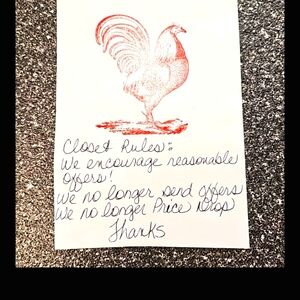 Closet Rules:
We encourage reasonable
offers!
We no longer send offers
We no longer Price Drop
Thanks